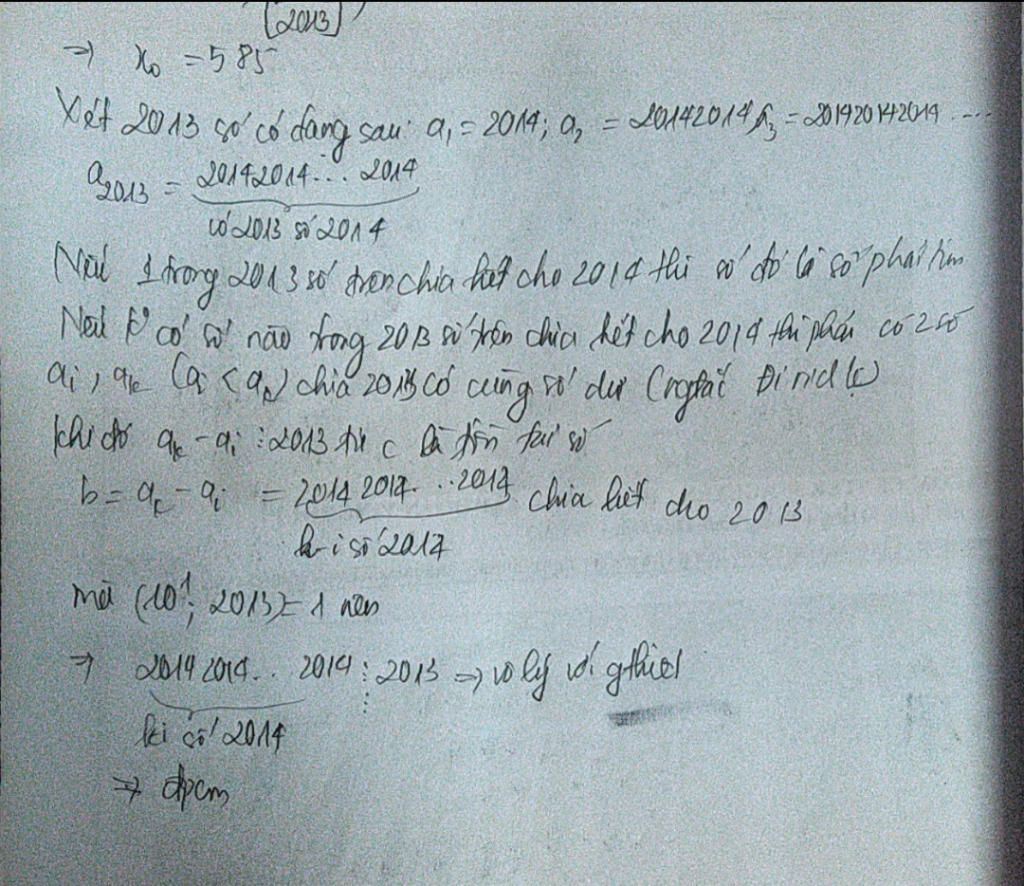 [2013]
⇒ x₀ = 585
Xét 2013 số có dạng sau: a₁ = 2014; a₂ = 20142014, a₃ = 201420142014 ....
a₂₀₁₃ = 20142014... 2014
có 2013 số 2014
Nếu 1 trong 2013 số trên chia hết cho 2014 thì số đó là số phải tìm
Nếu k⁰ có số nào trong 2013 số trên chia hết cho 2014 thì phải có 2 số
aᵢ, aₖ (aᵢ < aₖ) chia 2013 có cùng số dư (Đirichlê)
khi đó aₖ - aᵢ ⋮ 2013 tức là tồn tại số
b = aₖ - aᵢ = 2014 2014...2014 chia hết cho 2013
k-i số 2014
mà (10¹; 2013) = 1 nên
⇒ 2014 2014... 2014 ⋮ 2013 ⇒ vô lý với gthiết
ki số 2014
⇒ đpcm